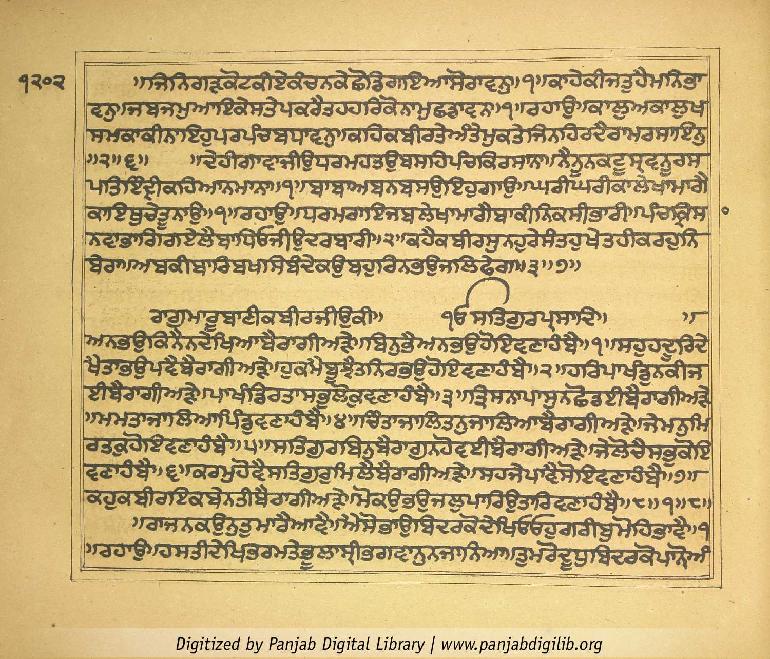 ੧੨੦੨
॥ਜਿਨਿਗੜਕੋਟਕੀਏਕੰਚਨਕੇਛੋਡਿਗਇਆਸੋਰਾਵਨੁ॥੧॥ਕਾਹੇਕੀਜਤੁਹੈਮਨਿਭਾ
ਵਨੁ॥ਜਬਜਮੁਆਇਕੇਸਤੇਪਕਰੈਤਹਹਰਿਕੋਨਾਮੁਛਡਾਵਨ॥੧॥ਰਹਾਉ॥ਕਾਲੁਅਕਾਲੁਖ
ਸਮਕਾਕੀਨਾਇਹੁਪਰਪੰਚਬਧਾਵਨੁ॥ਕਹਿਕਬੀਰਤੇਅੰਤੇਮੁਕਤੇਜਿਨਹਿਰਦੈਰਾਮਰਸਾਇਨੁ
॥੨॥੬॥ ॥ਦੇਹੀਗਾਵਾਜੀਉਧਰਮਹਤਉਬਸਹਿਪੰਚਕਿਰਸਾਨਾ॥ਨੈਨੂਨਕਟੂਸ੍ਰਵਨੂਰਸ
ਪਤਿਇੰਦ੍ਰੀਕਹਿਆਨਮਾਨਾ॥੧॥ਬਾਬਾਅਬਨਬਸਉਇਹਗਾਉ॥ਘਰੀਘਰੀਕਾਲੇਖਾਮਾਗੈ
ਕਾਇਥੁਚੇਤੂਨਾਉ॥੧॥ਰਹਾਉ॥ਧਰਮਰਾਇਜਬਲੇਖਾਮਾਗੈਬਾਕੀਨਿਕਸੀਭਾਰੀ॥ਪੰਚਕ੍ਰਿਸ
ਨਵਾਭਾਗਿਗਏਲੈਬਾਧਿਓਜੀਉਦਰਬਾਰੀ॥੨॥ਕਹੈਕਬੀਰਸੁਨਹੁਰੇਸੰਤਹੁਖੇਤਹੀਕਰਹੁਨਿ
ਬੇਰਾ॥ਅਬਕੀਬਾਰਿਬਖਸਿਬੰਦੇਕਉਬਹੁਰਿਨਭਉਜਲਿਫੇਰਾ॥੩॥੭॥
ਰਾਗੁਮਾਰੂਬਾਣੀਕਬੀਰਜੀਉਕੀ॥ ੴਸਤਿਗੁਰਪ੍ਰਸਾਦਿ॥ ॥
ਅਨਭਉਕਿਨੈਨਦੇਖਿਆਬੈਰਾਗੀਅੜੇ॥ਬਿਨੁਭੈਅਨਭਉਹੋਇਵਣਾਹੰਬੈ॥੧॥ਸਹੁਹਦੂਰਿਦੇ
ਖੈਤਾਭਉਪਵੈਬੈਰਾਗੀਅੜੇ॥ਹੁਕਮੈਬੂਝੈਤਨਿਰਭਉਹੋਇਵਣਾਹੰਬੈ॥੨॥ਹਰਿਪਾਖੰਡੁਨਕੀਜ
ਈਬੈਰਾਗੀਅੜੇ॥ਪਾਖੰਡਿਰਤਾਸਭੁਲੋਕੁਵਣਾਹੰਬੈ॥੩॥ਤ੍ਰਿਸਨਾਪਾਸੁਨਛੋਡਈਬੈਰਾਗੀਅੜੇ
॥ਮਮਤਾਜਾਲਿਆਪਿੰਡੁਵਣਾਹੰਬੈ॥੪॥ਚਿੰਤਾਜਾਲਿਤਨੁਜਾਲਿਆਬੈਰਾਗੀਅੜੇ॥ਜੇਮਨੁਮਿ
ਰਤਕੁਹੋਇਵਣਾਹੰਬੈ॥੫॥ਸਤਿਗੁਰਬਿਨੁਬੈਰਾਗੁਨਹੋਵਈਬੈਰਾਗੀਅੜੇ॥ਜੇਲੋਚੈਸਭੁਕੋਇ
ਵਣਾਹੰਬੈ॥੬॥ਕਰਮੁਹੋਵੈਸਤਿਗੁਰੁਮਿਲੈਬੈਰਾਗੀਅੜੇ॥ਸਹਜੇਪਾਵੈਸੋਇਵਣਾਹੰਬੈ॥੭॥
ਕਹੁਕਬੀਰਇਕਬੇਨਤੀਬੈਰਾਗੀਅੜੇ॥ਮੋਕਉਭਉਜਲੁਪਾਰਿਉਤਾਰਿਵਣਾਹੰਬੈ॥੮॥੧॥੮॥
॥ਰਾਜਨਕਉਨੁਤੁਮਾਰੈਆਵੈ॥ਐਸੋਭਾਉਬਿਦਰਕੋਦੇਖਿਓਓਹੁਗਰੀਬੁਮੋਹਿਭਾਵੈ॥੧
॥ਰਹਾਉ॥ਹਸਤੀਦੇਖਿਭਰਮਤੇਭੂਲਾਸ੍ਰੀਭਗਵਾਨੁਨਜਾਨਿਆ॥ਤੁਮਰੋਦੂਧੁਬਿਦਰਕੋਪਾਨੋਅੰ
Digitized by Panjab Digital Library | www.panjabdigilib.org